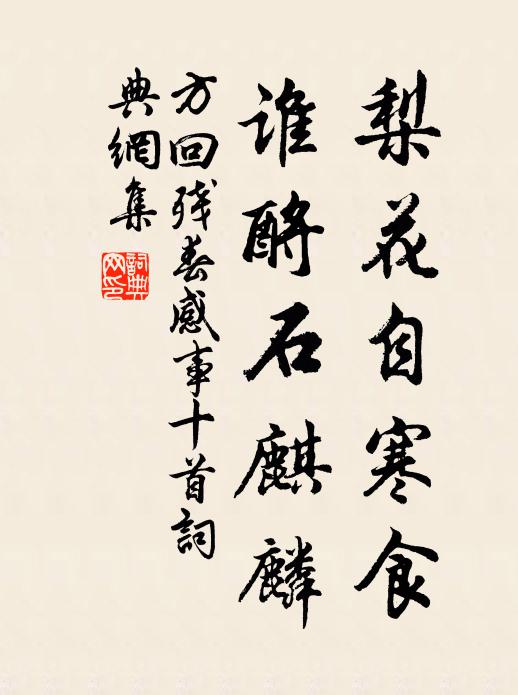 梨花自寒食
谁酹石麒麟
方回残春感事十首詞
典網集
詞典
网印